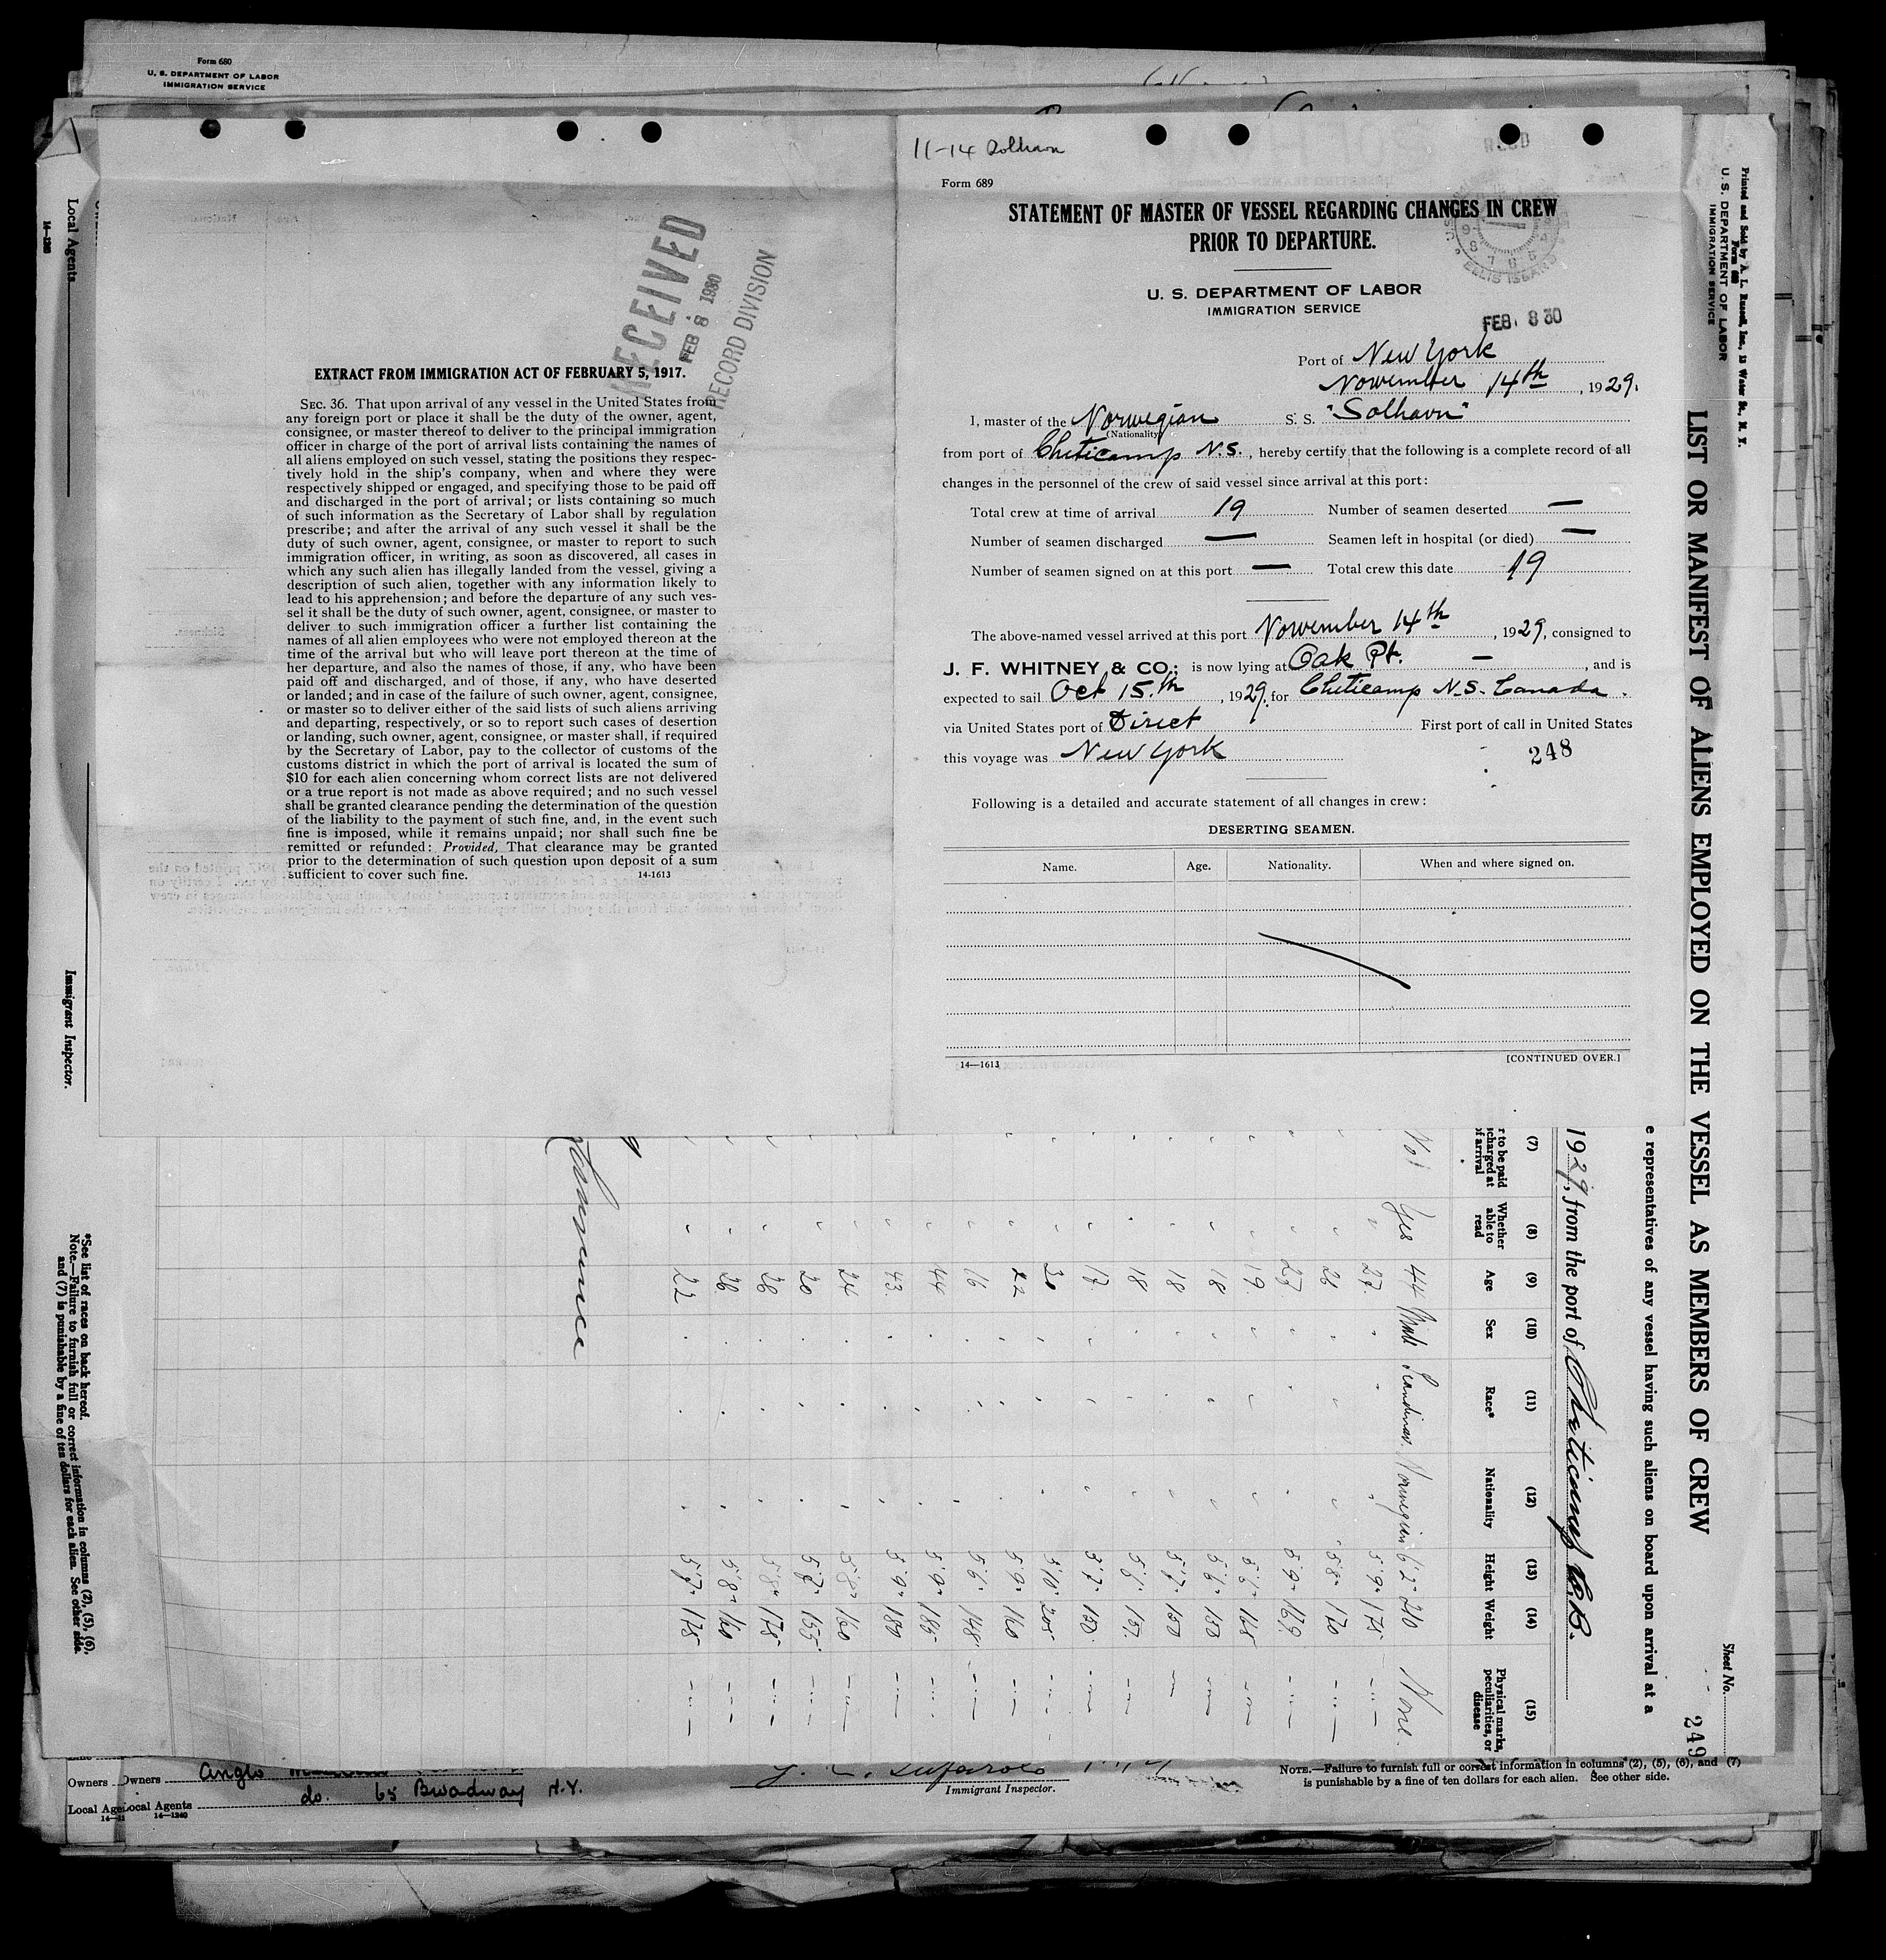 Form 680
U. S. DEPARTMENT OF LABOR
IMMIGRATION SERVICE
Local Agents
14-1240
Immigrant Inspector.
*See list of races on back hereof.
Note.—Failure to furnish full or correct information in columns (2), (5), (6),
and (7) is punishable by a fine of ten dollars for each alien. See other side.
RECEIVED
FEB 8 1930
RECORD DIVISION
EXTRACT FROM IMMIGRATION ACT OF FEBRUARY 5, 1917.
SEC. 36. That upon arrival of any vessel in the United States from
any foreign port or place it shall be the duty of the owner, agent,
consignee, or master thereof to deliver to the principal immigration
officer in charge of the port of arrival lists containing the names of
all aliens employed on such vessel, stating the positions they respec-
tively hold in the ship's company, when and where they were
respectively shipped or engaged, and specifying those to be paid off
and discharged in the port of arrival; or lists containing so much
of such information as the Secretary of Labor shall by regulation
prescribe; and after the arrival of any such vessel it shall be the
duty of such owner, agent, consignee, or master to report to such
immigration officer, in writing, as soon as discovered, all cases in
which any such alien has illegally landed from the vessel, giving a
description of such alien, together with any information likely to
lead to his apprehension; and before the departure of any such ves-
sel it shall be the duty of such owner, agent, consignee, or master to
deliver to such immigration officer a further list containing the
names of all alien employees who were not employed thereon at the
time of the arrival but who will leave port thereon at the time of
her departure, and also the names of those, if any, who have been
paid off and discharged, and of those, if any, who have deserted
or landed; and in case of the failure of such owner, agent, consignee,
or master so to deliver either of the said lists of such aliens arriving
and departing, respectively, or so to report such cases of desertion
or landing, such owner, agent, consignee, or master shall, if required
by the Secretary of Labor, pay to the collector of customs of the
customs district in which the port of arrival is located the sum of
$10 for each alien concerning whom correct lists are not delivered
or a true report is not made as above required; and no such vessel
shall be granted clearance pending the determination of the question
of the liability to the payment of such fine, and, in the event such
fine is imposed, while it remains unpaid; nor shall such fine be
remitted or refunded: Provided, That clearance may be granted
prior to the determination of such question upon deposit of a sum
sufficient to cover such fine. 14-1613
11-14 Solhavn
Form 689
STATEMENT OF MASTER OF VESSEL REGARDING CHANGES IN CREW
PRIOR TO DEPARTURE.
ELLIS ISLAND
U. S. DEPARTMENT OF LABOR
IMMIGRATION SERVICE
FEB. 8 30
Port of New York
November 14th, 1929.
I, master of the Norwegian S. S. "Solhavn"
(Nationality)
from port of Cheticamp N.S., hereby certify that the following is a complete record of all
changes in the personnel of the crew of said vessel since arrival at this port:
Total crew at time of arrival 19 Number of seamen deserted —
Number of seamen discharged — Seamen left in hospital (or died) —
Number of seamen signed on at this port — Total crew this date 19
The above-named vessel arrived at this port November 14th, 1929, consigned to
J. F. WHITNEY & CO.; is now lying at Oak Pt. —, and is
expected to sail Oct 15.th, 1929, for Cheticamp N.S. Canada.
via United States port of Direct First port of call in United States
this voyage was New York
248
Following is a detailed and accurate statement of all changes in crew:
DESERTING SEAMEN.
Name. Age. Nationality. When and where signed on.
14—1613 [CONTINUED OVER.]
Printed and Sold by A. L. Russell, Inc., 13 Water St., N. Y.
Form 680
U. S. DEPARTMENT OF LABOR
IMMIGRATION SERVICE
LIST OR MANIFEST OF ALIENS EMPLOYED ON THE VESSEL AS MEMBERS OF CREW
Sheet No.
249
e representatives of any vessel having such aliens on board upon arrival at a
1929, from the port of Cheticamp C.B.
(7) (8) (9) (10) (11) (12) (13) (14) (15)
r to be paid
scharged at
of arrival
Whether able to read Age Sex Race* Nationality Height Weight Physical marks, peculiarities, or disease
No Yes 44 Male Scandinav. Norwegian 6'2" 210 None
" 27 " " " 5'9" 175 —
" 26 " " " 5'8" 170 —
" 27 " " " 5'9" 169 —
" 19 " " " 5'6" 168 —
" 18 " " " 5'6" 150 —
" 18 " " " 5'7" 150 —
" 18 " " " 5'6" 157 —
" 17 " " " 5'7" 150 —
" 30 " " " 5'10" 205 —
" 22 " " " 5'9" 160 —
" 16 " " " 5'6" 148 —
" 44 " " " 5'9" 185 —
" 43 " " " 5'9" 180 —
" 24 " " " 5'8" 160 —
" 20 " " " 5'7" 155 —
" 26 " " " 5'8" 178 —
" 26 " " " 5'8" 160 —
" 22 " " " 5'7" 175 —
Owners Owners Anglo
Local Age Local Agents do. 65 Broadway N.Y.
14—1240
Immigrant Inspector.
NOTE.—Failure to furnish full or correct information in columns (2), (5), (6), and (7)
is punishable by a fine of ten dollars for each alien. See other side.